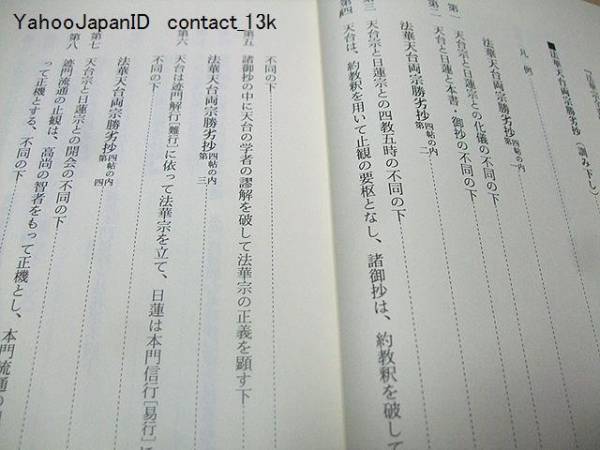 YahooJapanID　contact_13k
■法華天台両宗勝劣抄（訓み下し）
凡例
法華天台両宗勝劣抄 四帖の内 第一
第一 天台宗と日蓮宗との化儀の不同の下
第二 天台と日蓮と本書・御抄の不同の下
法華天台両宗勝劣抄 四帖の内 第二
第三 天台宗と日蓮宗との四教五時の不同の下
第四 天台は、約教釈を用いて止観の要枢となし、諸御抄は、約教釈を破して
不同の下
第五 諸御抄の中に天台の学者の謬解を破して法華宗の正義を顕す下
法華天台両宗勝劣抄 四帖の内 第三
第六 天台は迹門解行［難行］に依って法華宗を立て、日蓮は本門信行［易行］に
不同の下
法華天台両宗勝劣抄 四帖の内 第四
第七 天台宗と日蓮宗との開会の不同の下
第八 迹門流通の止観は、高尚の智者をもって正機とし、本門流通の
って正機とする、不同の下